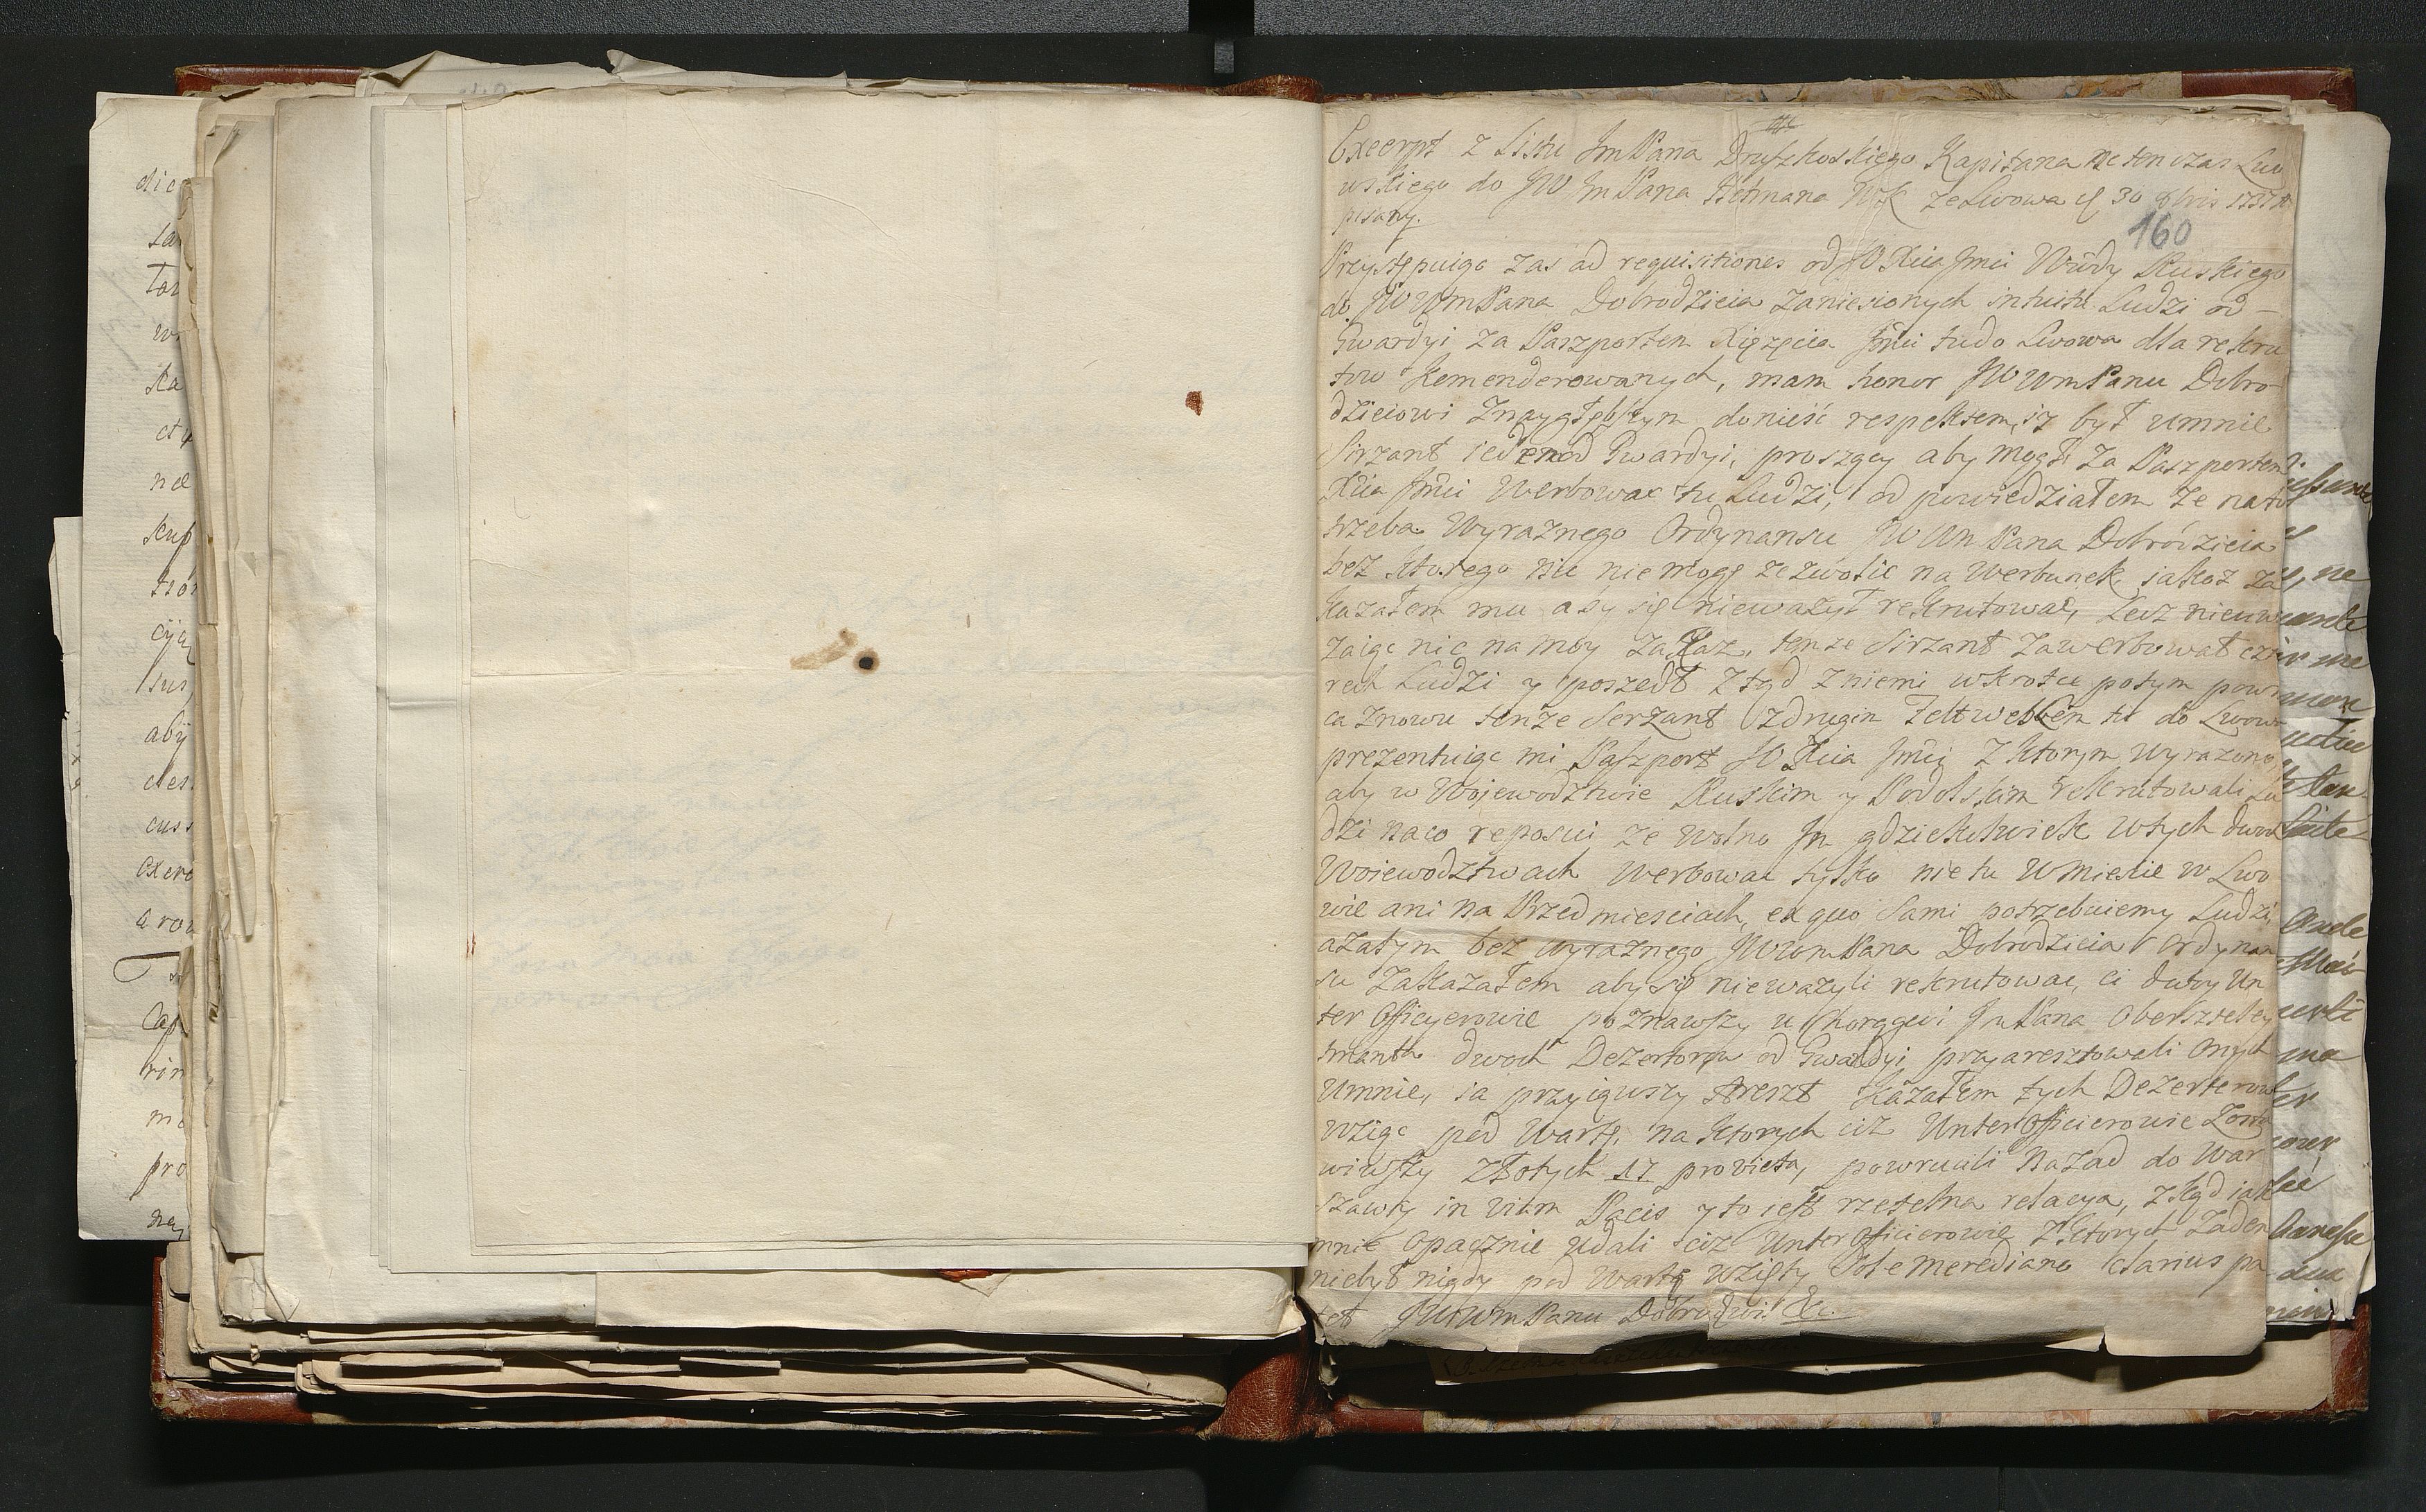 Excerpt z Listu Jm Pana Druszkoskiego Kapitana na ten czas Lwo
wskiego do JW Jm Pana Hetmana WK ze Lwowa d 30 8bris 1737
pisany.
160
Przystępuiąc zas ad requisitiones od JO Xcia Jmci Wdy Ruskiego
do JW WmPana Dobrodzieia zaniesionych intuitu Ludzi od
Gwardyi za Paszportem Xiązęcia Jmci tu do Lwowa dla rekru
tow Komenderowanych, mam honor JW WmPanu Dobro
dzieiowi z naygłębszym donieść respektem, iz był umnie
Sirzant ieden od Gwardyi, proszący aby mogł za Paszportem
Xcia Jmci Werbowac tu Ludzi, odpowiedziałem ze na to
trzeba Wyraznego Ordynansu JW Wm Pana Dobrodzieia
bez ktorego nic niemogę zezwolic na Werbunek, iakoz za
kazałem mu aby się niewazył rekrutowac, Lecz nieuwa
zaiąc nic na moy zakaz, tenze Sirzant zawerbował czte
rech Ludzi y poszedł ztąd z niemi wkrotce potym powra
ca znowu tenze Serzant z drugim Feltweblem tu do Lwowa
prezentuiąc mi Paszport JO Xcia Jmci z ktorym wyrazono
aby w Wojewodztwie Ruskim y Podolskim rekrutowali Lu
dzi na co reposui ze wolno Jm gdziekolwiek w tych dwoch
Woiewodztwach Werbowac tylko nie tu w Miescie w Lwo
wie ani na Przedmiesciach, ex quo sami potrzebuiemy Ludzi,
a zatym bez wyraznego JW WmPana Dobrodzieia Ordynan
su zakazałem aby się niewazyli rekrutowac, ci dway Un
ter Officyerowie poznawszy u Chorągwi Jm Pana Oberszteley
tmanta dwoch Dezertorow od Gwardyi przyaresztowali onych
umnie, ia przyiąwszy Areszt kazałem tych Dezerterow
wziąc pod Wartę, na ktorych ciz Unter Officierowie Zosta
wiwszy Złotych 17 pro victu, powrucili nazad do War
szawy in viam Pacis y to iest rzetelna relacya, zkąd iak
mnie opacznie udali ciz Unter Officierowie z ktorych zaden
niebył nigdy pod Wartę wzięty Sole merediano clarius pa
tet JW WmPanu Dobrodzi &c.